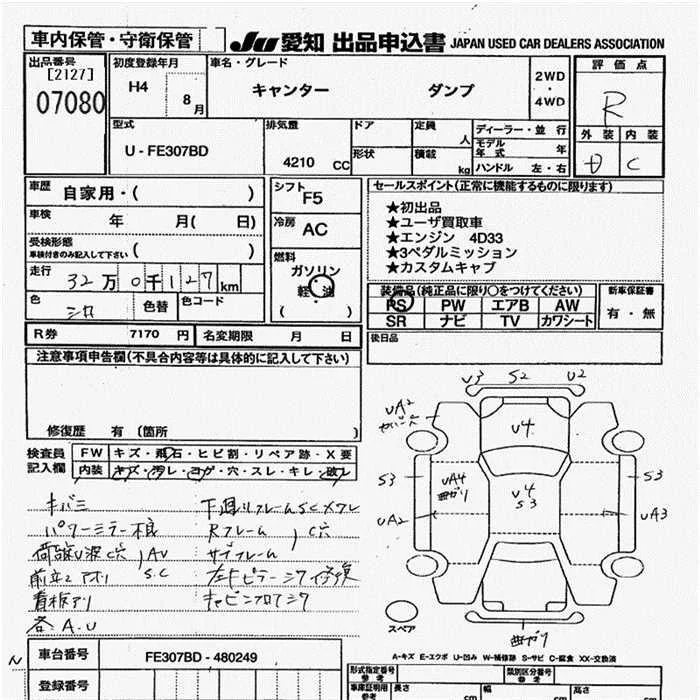 車内保管・守衛保管
JU 愛知 出品申込書 JAPAN USED CAR DEALERS ASSOCIATION
出品番号
[2127]
07080
初度登録年月
H4
8月
車名・グレード
キャンター ダンプ
2WD
・
4WD
評価点
R
外装 内装
D C
型式
U - FE307BD
排気量
4210 CC
ドア
形状
定員
人
積載
kg
ディーラー・並行
モデル年式 年
ハンドル 左・右
車歴 自家用・( )
車検 年 月( 日)
受検形態
車検付きのみ記入して下さい ( )
走行
32万0千127km
色
シロ
色替
色コード
シフト
F5
冷房
AC
燃料
ガソリン
軽油
( )
セールスポイント(正常に機能するものに限ります)
★初出品
★ユーザ買取車
★エンジン 4D33
★3ペダルミッション
★カスタムキャブ
装備品(純正品に限り○をつけてください)
PS PW エアB AW
SR ナビ TV カワシート
新車保証書
有・無
R券 7170 円
名変期限 月 日
後日品
注意事項申告欄(不具合内容等は具体的に記入して下さい)
修復歴 有 〔箇所
検査員
記入欄
FW キズ・飛石・ヒビ割・リペア跡・X要
内装 キズ・汚レ・コゲ・穴・スレ・キレ・破レ
キバミ
パワーミラー不良
荷台U波C穴
AU
S.C
看板アリ
各A.U
下廻リフレームSCメクレ
Rフレーム
C穴
サブフレーム
左Fピラーシワ修復
キャビンフロアシワ
V3 S2 U2
UA2
V4
S3
UA4
曲ガリ
V4
S3
S3
UA2
UA3
曲ガリ
スペア
A-キズ E-エクボ U-凹み W-補修跡 S-サビ C-腐食 XX-交換済
N
車台番号 FE307BD - 480249
登録番号
形式指定番号
参考
類別区分番号
参考
車庫証明用
参考
長さ
幅
高さ